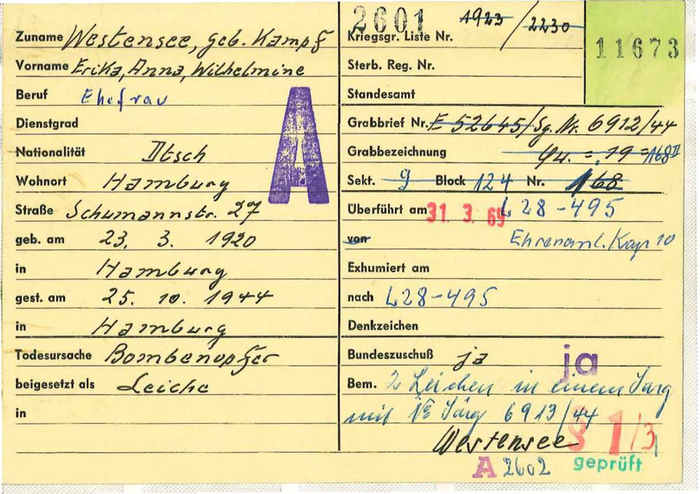 Zuname Westensee, geb. Kampf
Vorname Erika, Anna, Wilhelmine
Beruf Ehefrau
Dienstgrad
Nationalität Dtsch
Wohnort Hamburg
Straße Schumannstr. 27
geb. am 23. 3. 1920
in Hamburg
gest. am 25. 10. 1944
in Hamburg
Todesursache Bombenopfer
beigesetzt als Leiche
in
A
2601 1923/2230
Kriegsgr. Liste Nr.
11673
Sterb. Reg. Nr.
Standesamt
Grabbrief Nr. E 52645/Sg. Nr. 6912/44
Grabbezeichnung = 19 = 168 II
Sekt. 9 Block 124 Nr. 168
Überführt am 31. 3. 69 L 28-495
von Ehrenanl. Kap 10
Exhumiert am
nach L28-495
Denkzeichen
Bundeszuschuß ja ja
Bem. 2 Leichen in einem Sarg
mit Sarg 6913/44
Westensee 81/3
A 2602 geprüft